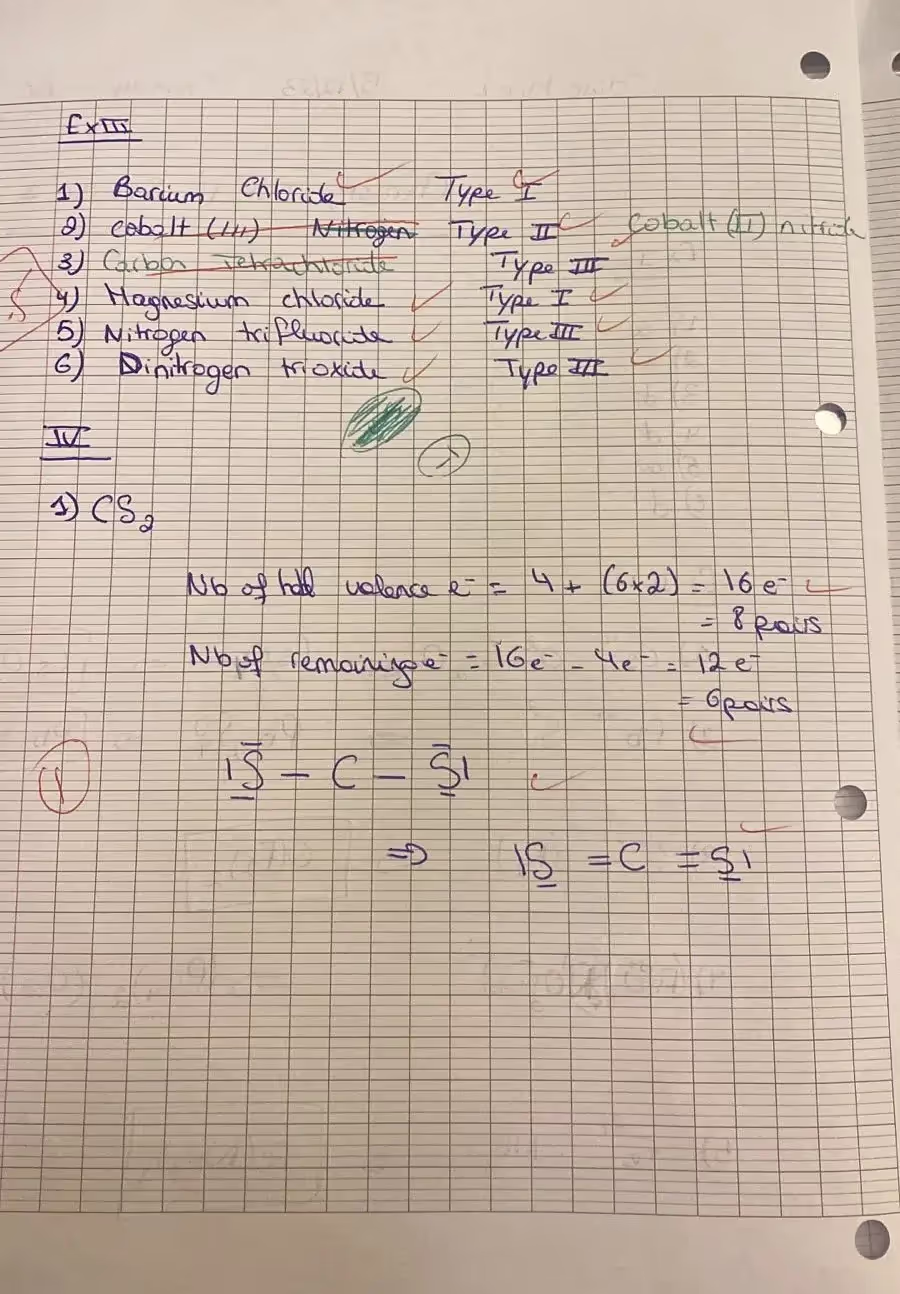 Ex III
1) Barium Chloride Type I
2) cobalt (III) Nitrogen Type II Cobalt (II) nitride
3) Carbon Tetrachloride Type III
4) Magnesium chloride Type I
5) Nitrogen trifluoride Type III
6) Dinitrogen trioxide Type III
IV
1) CS₂
Nb of valence e⁻ = 4 + (6x2) = 16 e⁻
= 8 pairs
Nb of remaining e⁻ = 16e⁻ - 4e⁻ = 12 e⁻
= 6 pairs
|S̲̅ – C – S̲̅|
⇒ |S̲ = C = S̲|